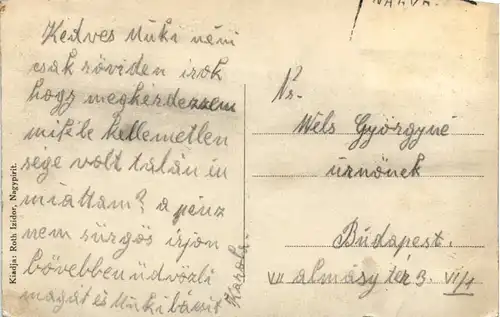 Kedves Muki néni
csak röviden irok
hogy megkérdezzem
miféle kellemetlen
sége volt talán én
miattam? a pénz
nem sürgős irjon
bővebben üdvözli
magát és Muki bácsit
Károly
Kiadja: Roth Izidor, Nagypirit.
Wels Györgyné
úrnőnek
Budapest.
VII almásy tér 3. VI/1